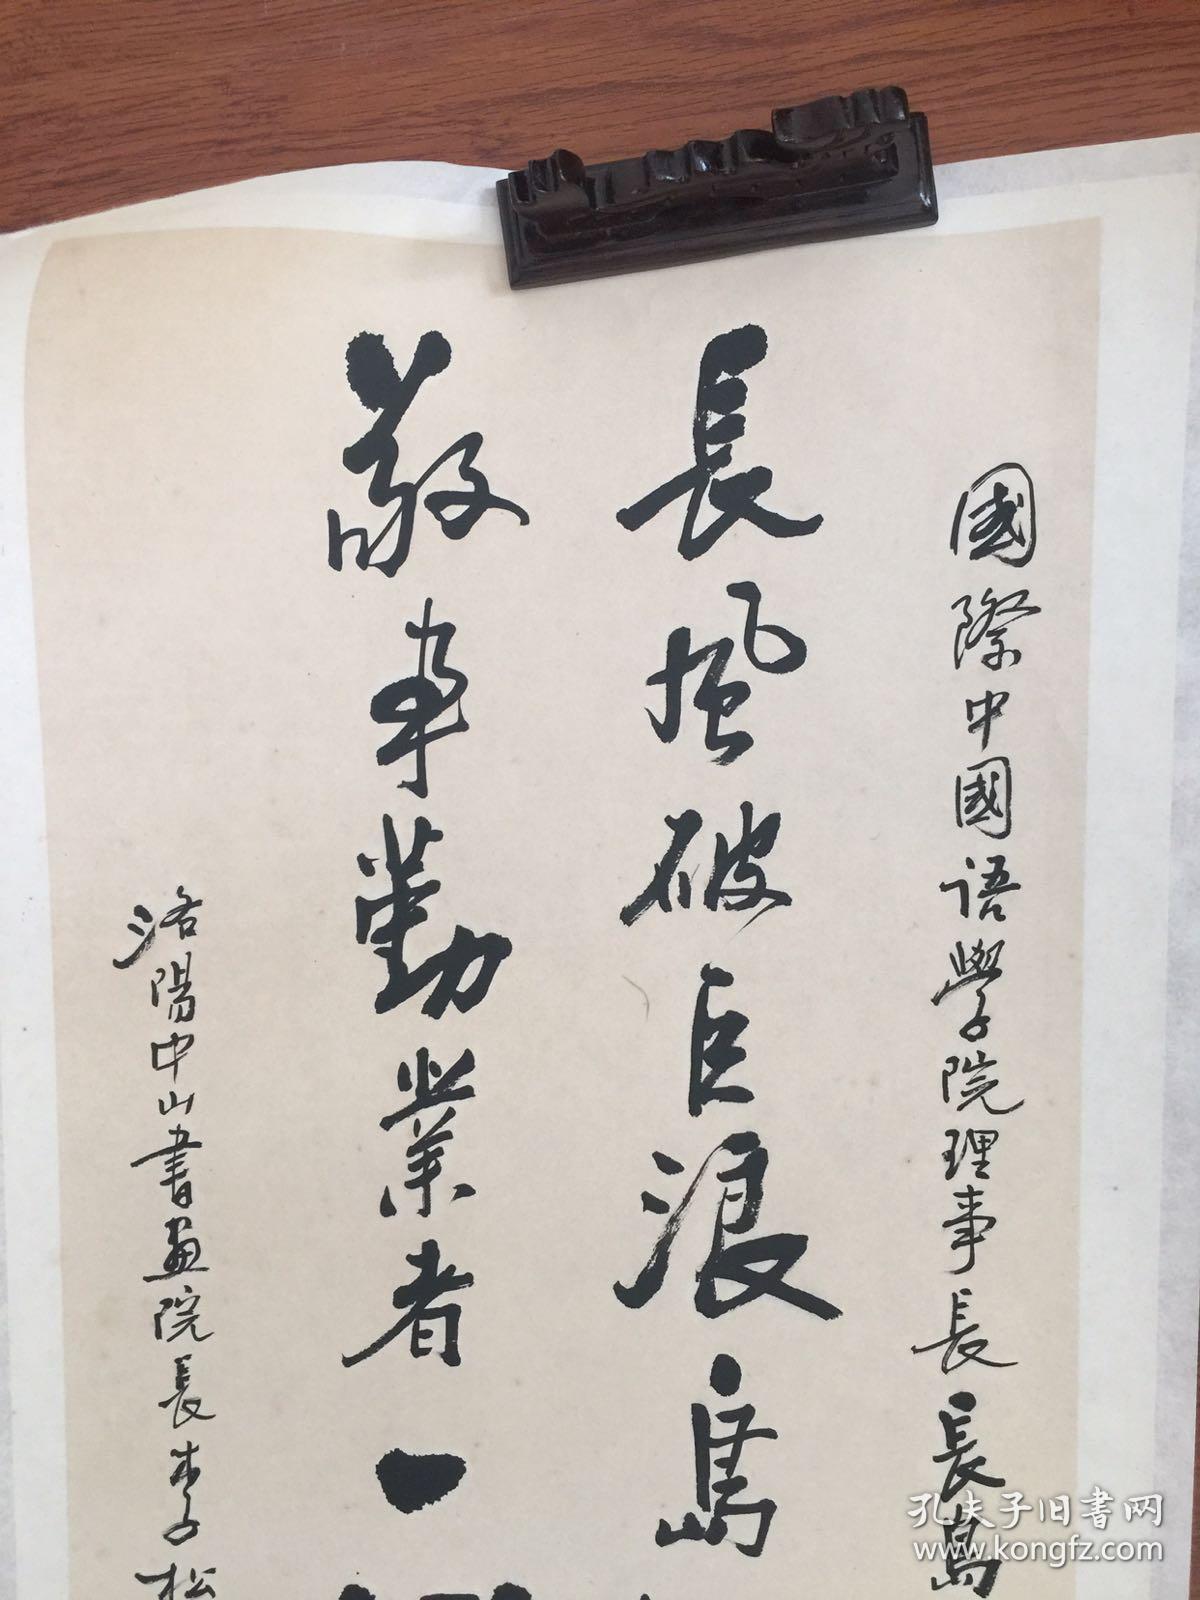 國際中國语學院理事長長島
長風破巨浪島
敬事勤業者一
洛陽中山書画院長李松
孔夫子旧書网
www.kongfz.com